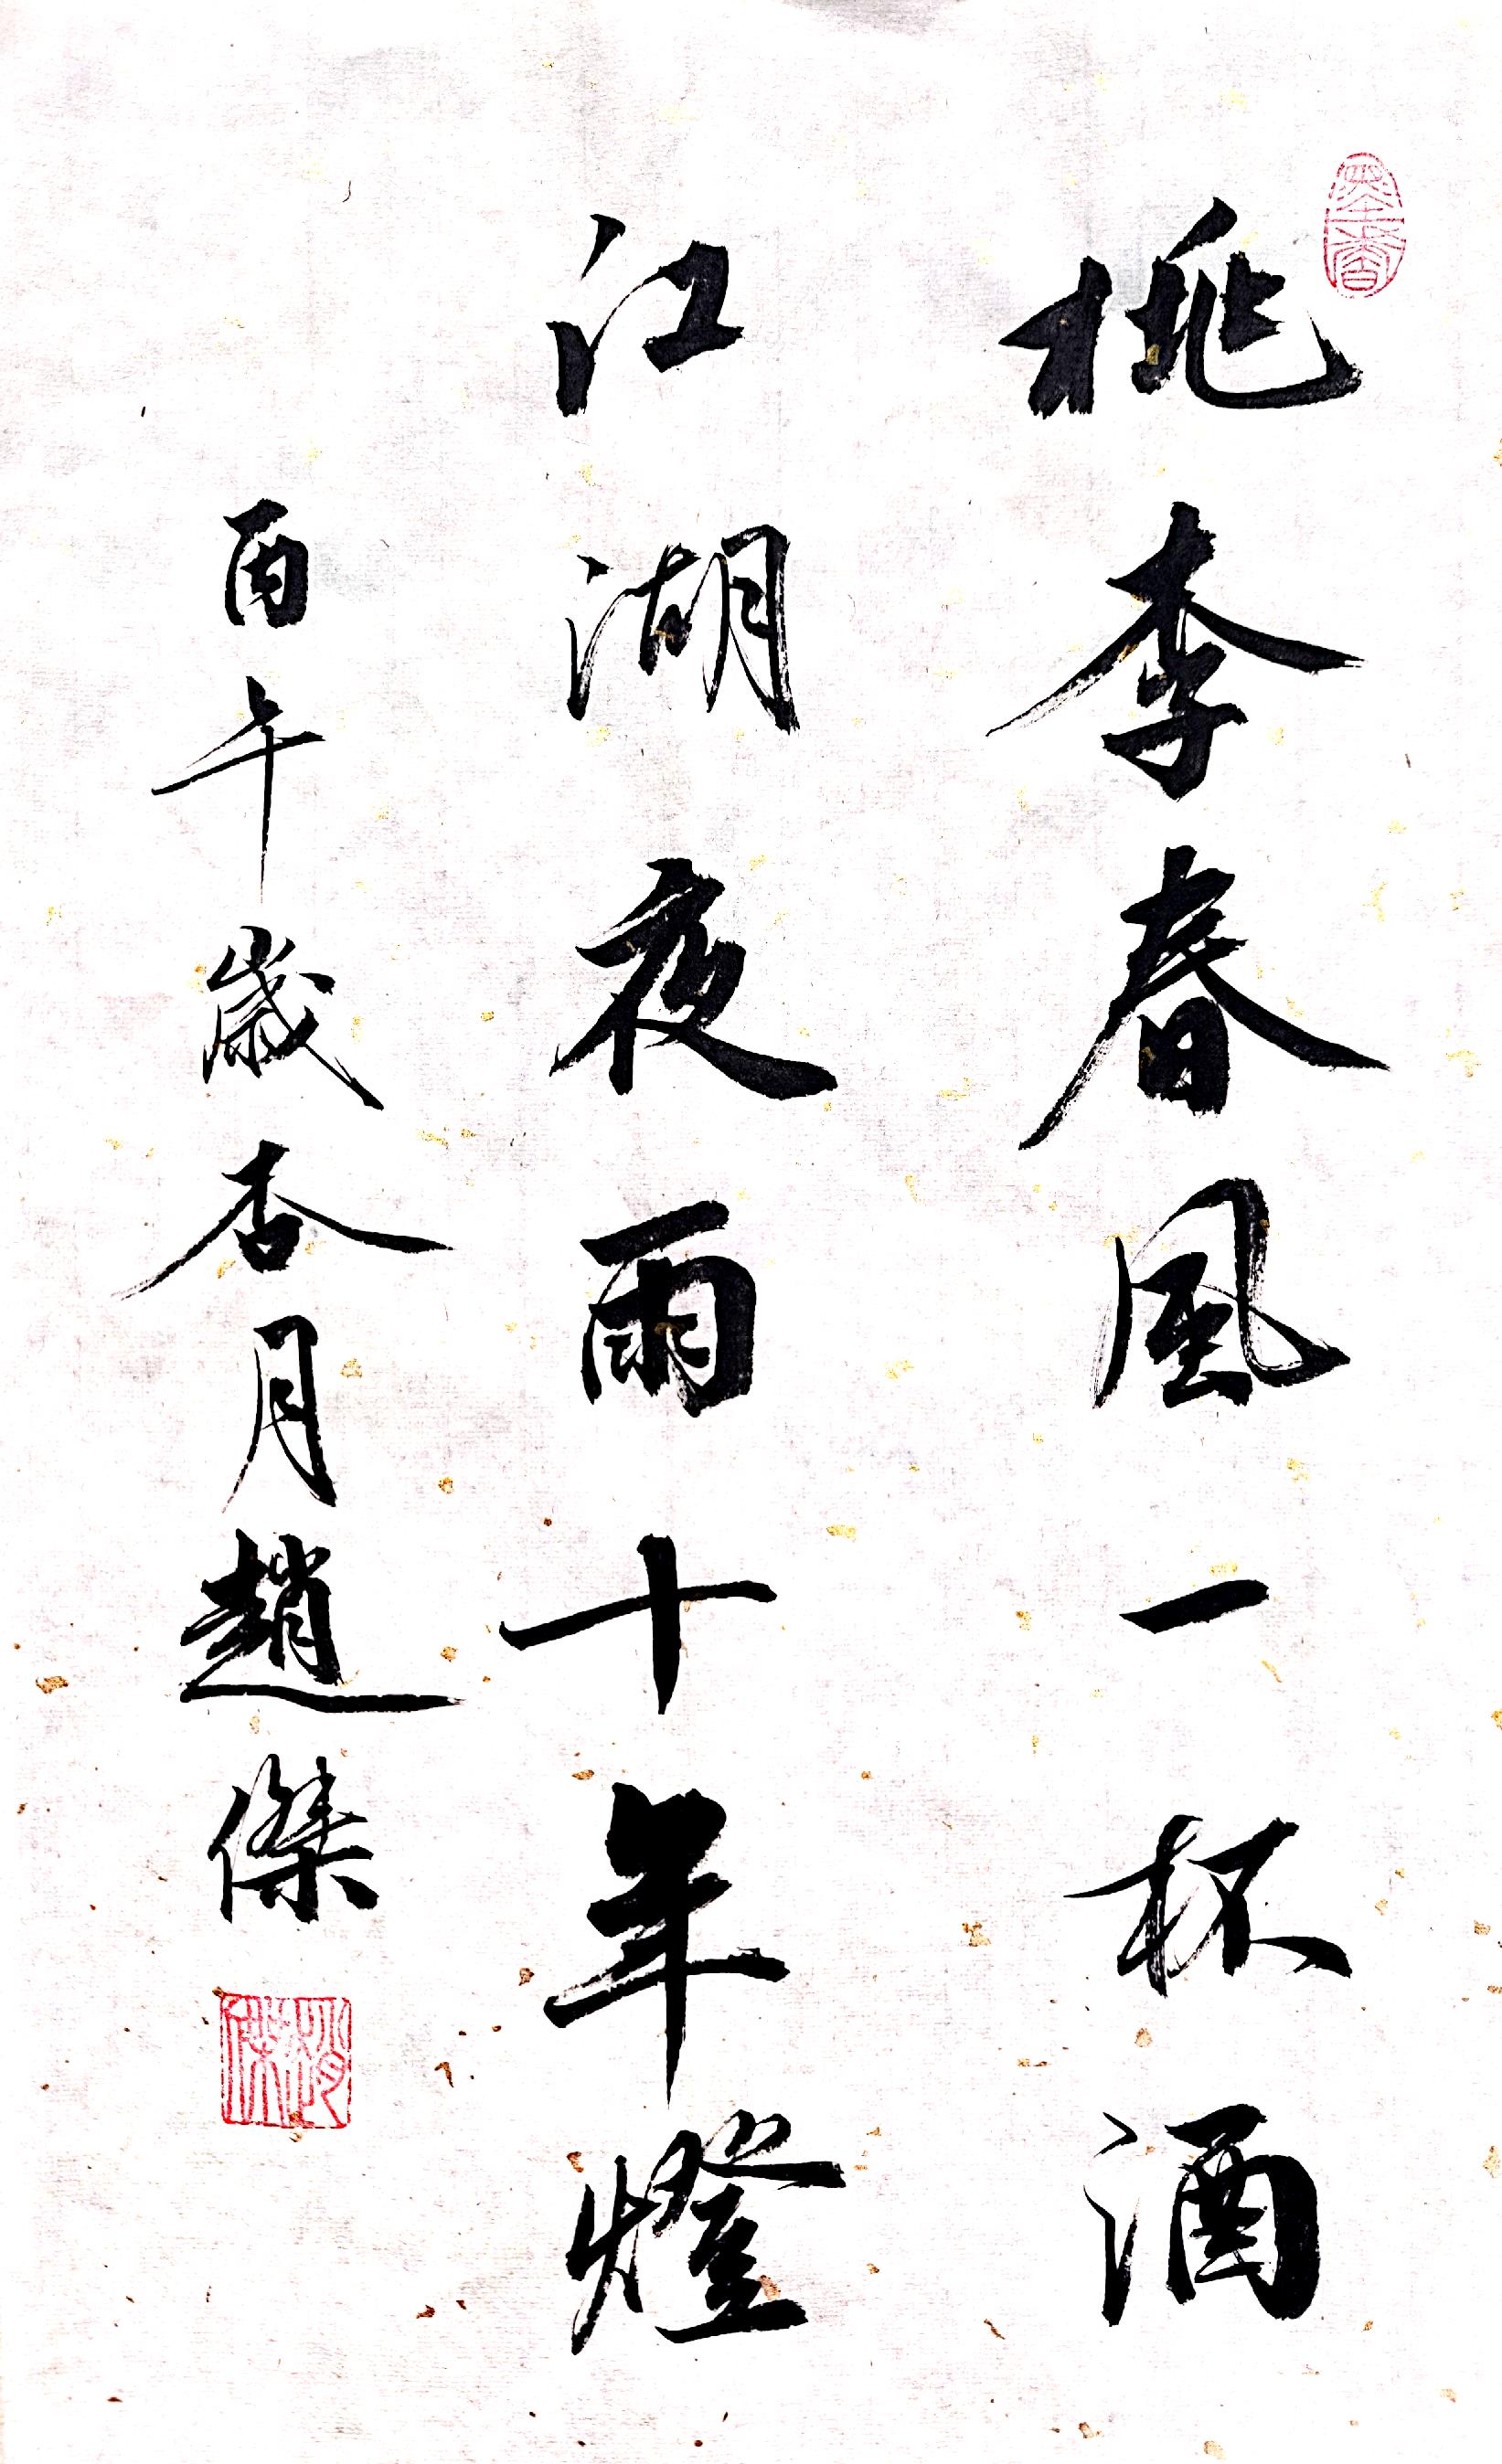 桃李春風一杯酒
江湖夜雨十年燈
丙午歲杏月趙傑
墨香
趙傑